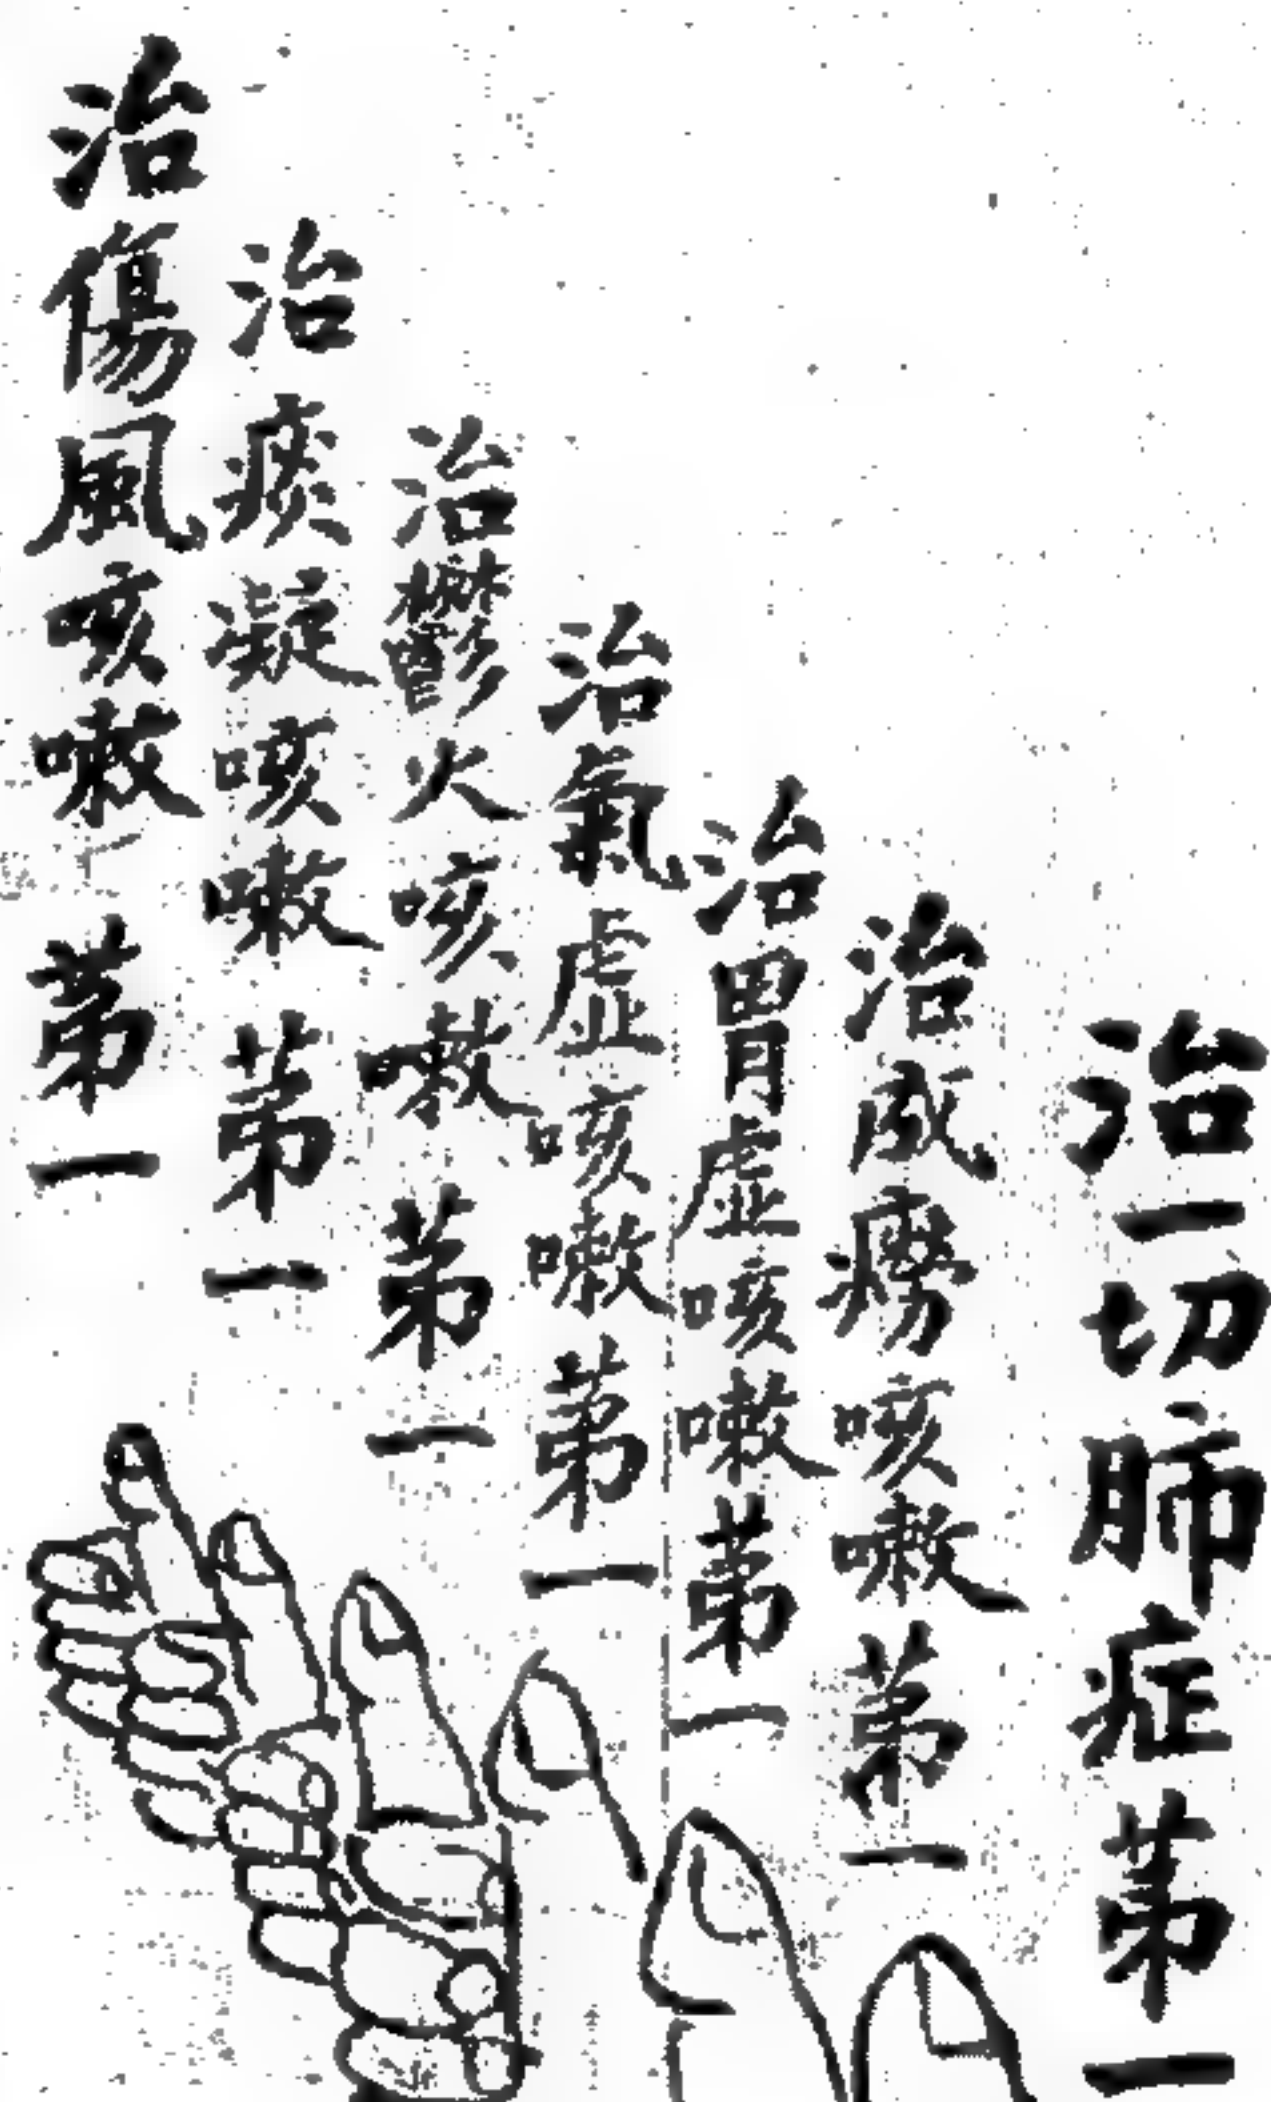 治一切肺症苐一
治成癆咳嗽苐一
治胃虛咳嗽苐一
治氣虛咳嗽苐一
治鬱火咳嗽苐一
治痰凝咳嗽苐一
治傷風咳嗽苐一